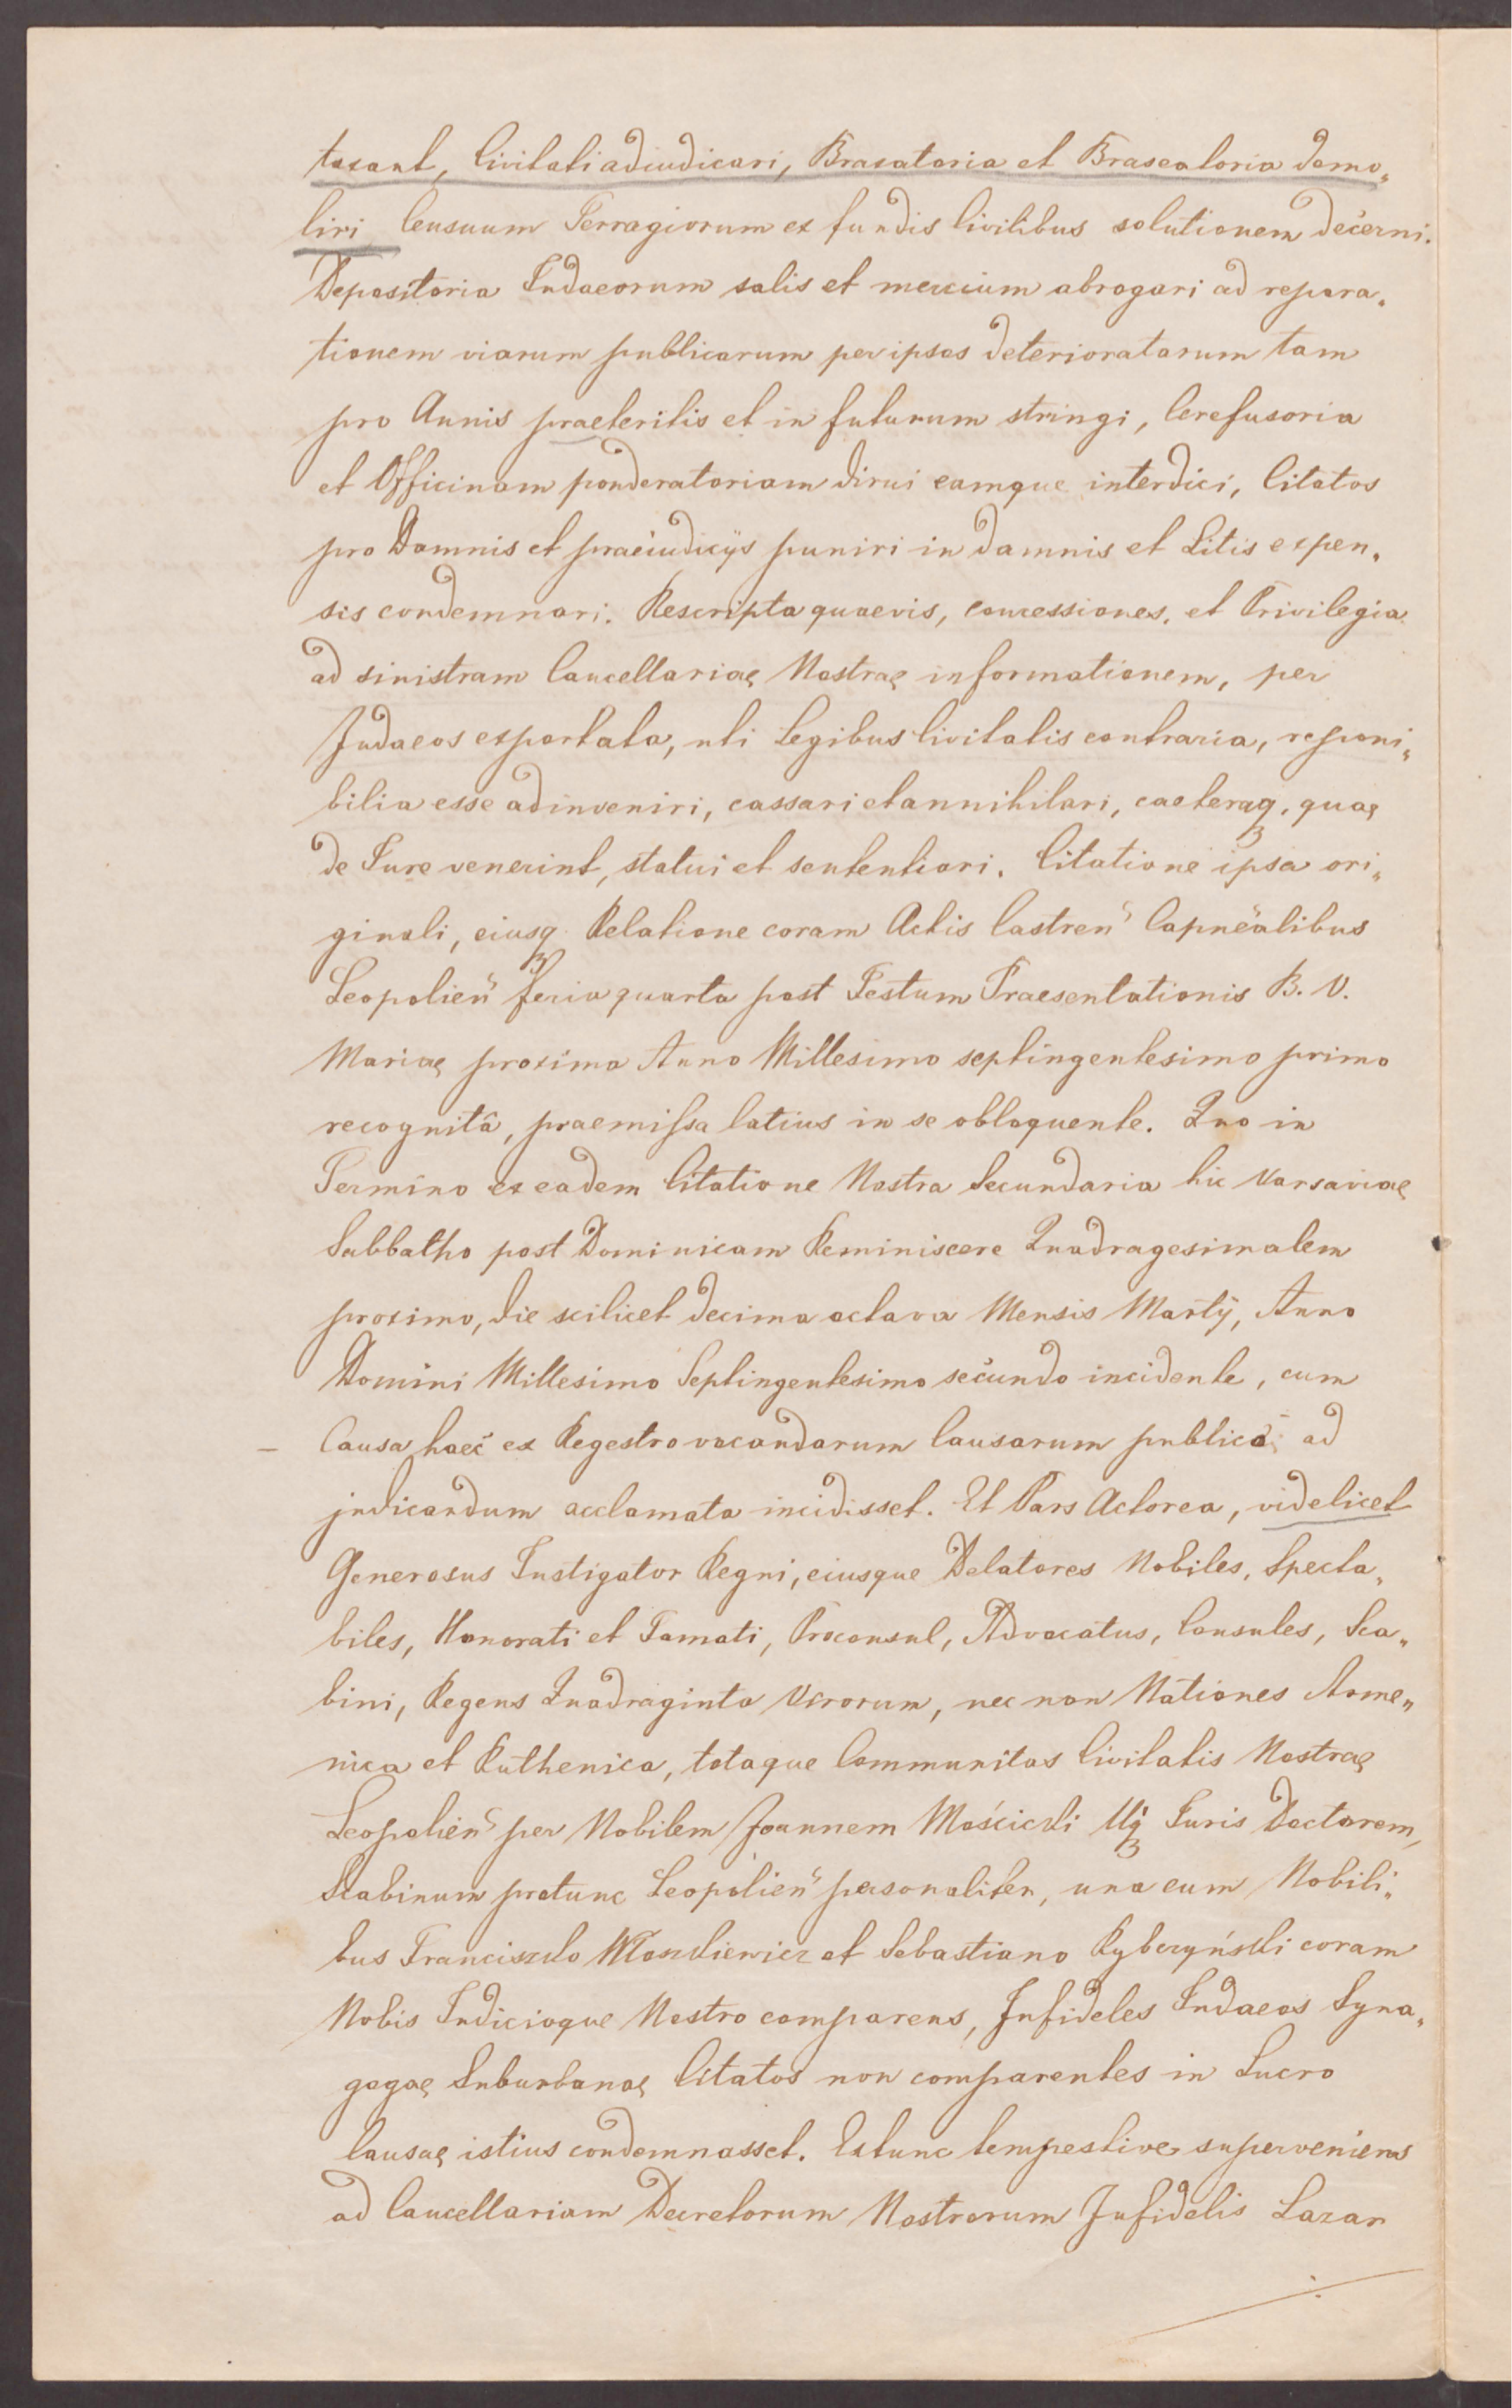 taxant, Civitati adiudicari, Braxatoria et Braseatoria demo„
liri Censuum Terragiorum ex fundis Civilibus solutionem decerni.
Depositoria Judaeorum salis et mercium abrogari ad repara„
tionem viarum publicarum per ipsos deterioratarum tam
pro Annis praeteritis et in futurum stringi, Cerefusoria
et Officinam ponderatoriam dirui eamque interdici, Citatos
pro Damnis et praeiudicijs puniri in damnis et Litis expen„
sis condemnari. Rescripta quaevis, concessiones, et Privilegia
ad sinistram Cancellariae Nostrae informationem, per
Judaeos exportata, uti Legibus Civitatis contraria, reponi„
bilia esse adinveniri, cassari et annihilari, caeteraq, quae
de Jure venerint, statui et sententiari. Citatione ipsa ori„
ginali, eiusq Relatione coram Actis Castren̄ Capnealibus
Leopolien̄ feria quarta post Festum Praesentationis B. V.
Mariae proxima Anno Millesimo septingentesimo primo
recognitâ, praemissa latius in se obloquente. Quo in
Termino ex eadem Citatione Nostra Secundaria hic Varsaviae
Sabbatho post Dominicam Reminiscere Quadragesimalem
proximo, die scilicet decima octava Mensis Martij, Anno
Domini Millesimo Septingentesimo secundo incidente, cum
– Causa haec ex Regestro vocandarum Causarum publica ad
judicandum acclamata incidisset. Et Pars Actorea, videlicet
Generosus Instigator Regni, eiusque Delatores Nobiles, Specta„
biles, Honorati et Famati, Proconsul, Advocatus, Consules, Sca„
bini, Regens Quadraginta Virorum, nec non Nationes Arme„
nica et Ruthenica, totaque Communitas Civitatis Nostrae
Leopolien̄ per Nobilem Joannem Mościcki Uq Juris Doctorem,
Scabinum protunc Leopolien̄ personaliter, una cum Nobili„
bus Francisco Wloszkiewicz et Sebastiano Rybczyński coram
Nobis Judicioque Nostro comparens, Infideles Judaeos Syna„
gogae Suburbanae Citatos non comparentes in Lucro
Causae istius condemnasset. Extunc tempestive superveniens
ad Cancellariam Decretorum Nostrorum Infidelis Lazar